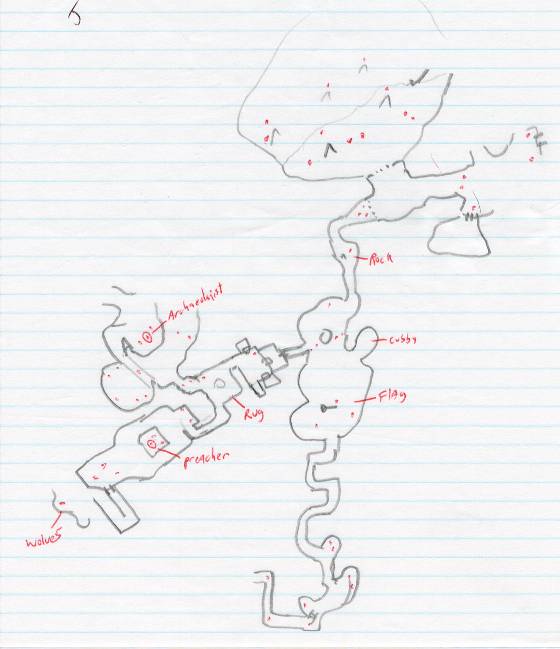 Rock
Archaeologist
cubby
Flag
Rug
preacher
wolves